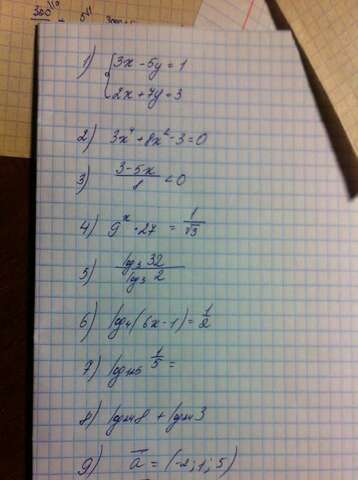 1) { 3x - 5y = 1
2x + 7y = 3
2) 3x⁴ + 8x² - 3 = 0
3) (3-5x)/1 < 0
4) 9ˣ · 27 = 1/√3
5) log₃ 32 / log₃ 2
6) log₄(6x - 1) = 1/2
7) log₁₂₅ 1/5 =
8) log₂₄ 8 + log₂₄ 3
9) a = (-2; 1; 5)